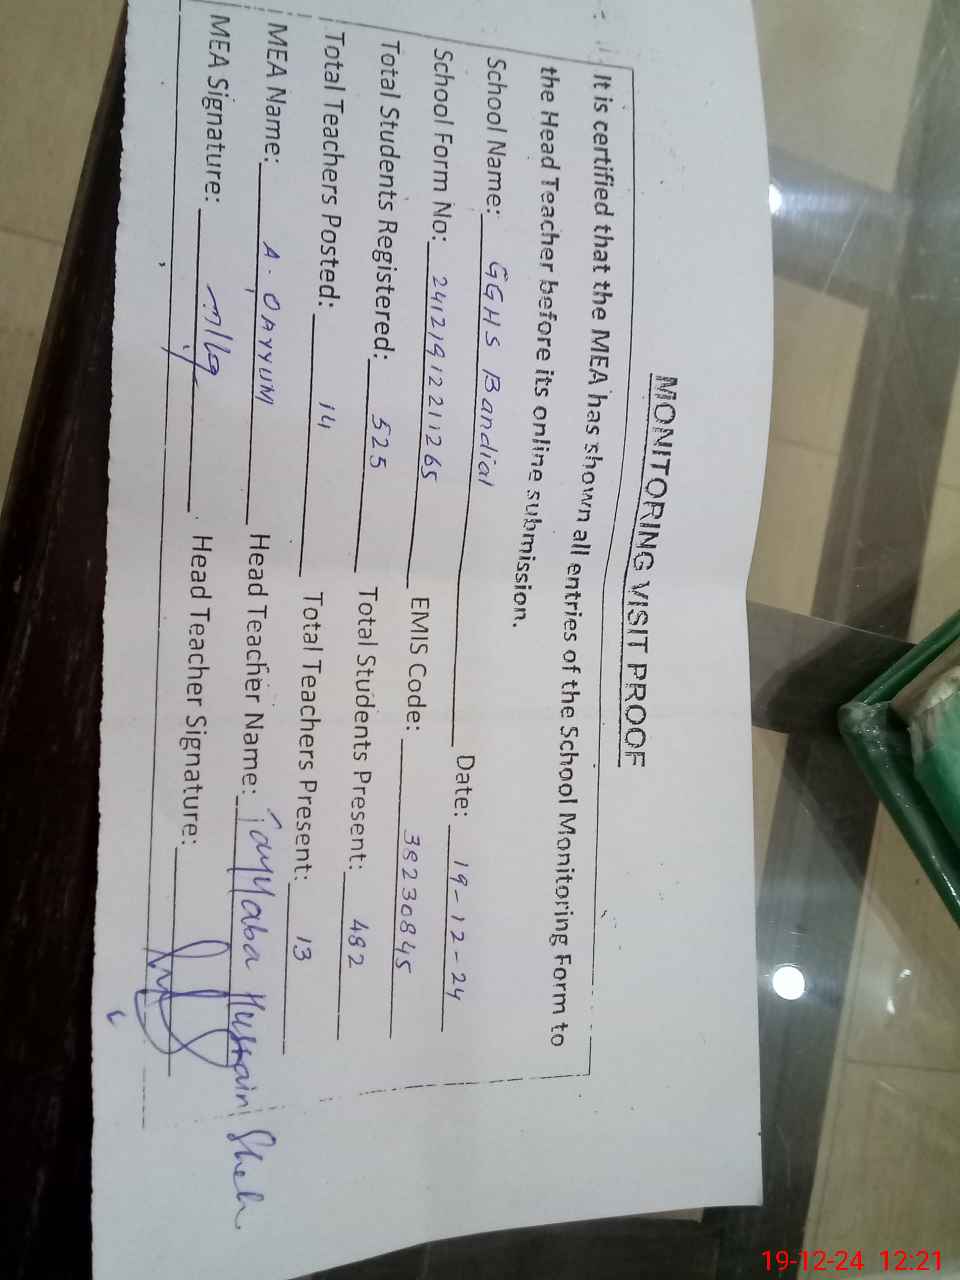 MONITORING VISIT PROOF
It is certified that the MEA has shown all entries of the School Monitoring Form to
the Head Teacher before its online submission.
School Name: GGHS Bandial Date: 19-12-24
School Form No: 241219121265 EMIS Code: 38230845
Total Students Registered: 525 Total Students Present: 482
Total Teachers Posted: 14 Total Teachers Present: 13
MEA Name: A. QAYYUM Head Teacher Name: Tayyaba Hussain Shah
MEA Signature: Head Teacher Signature:
19-12-24 12:21